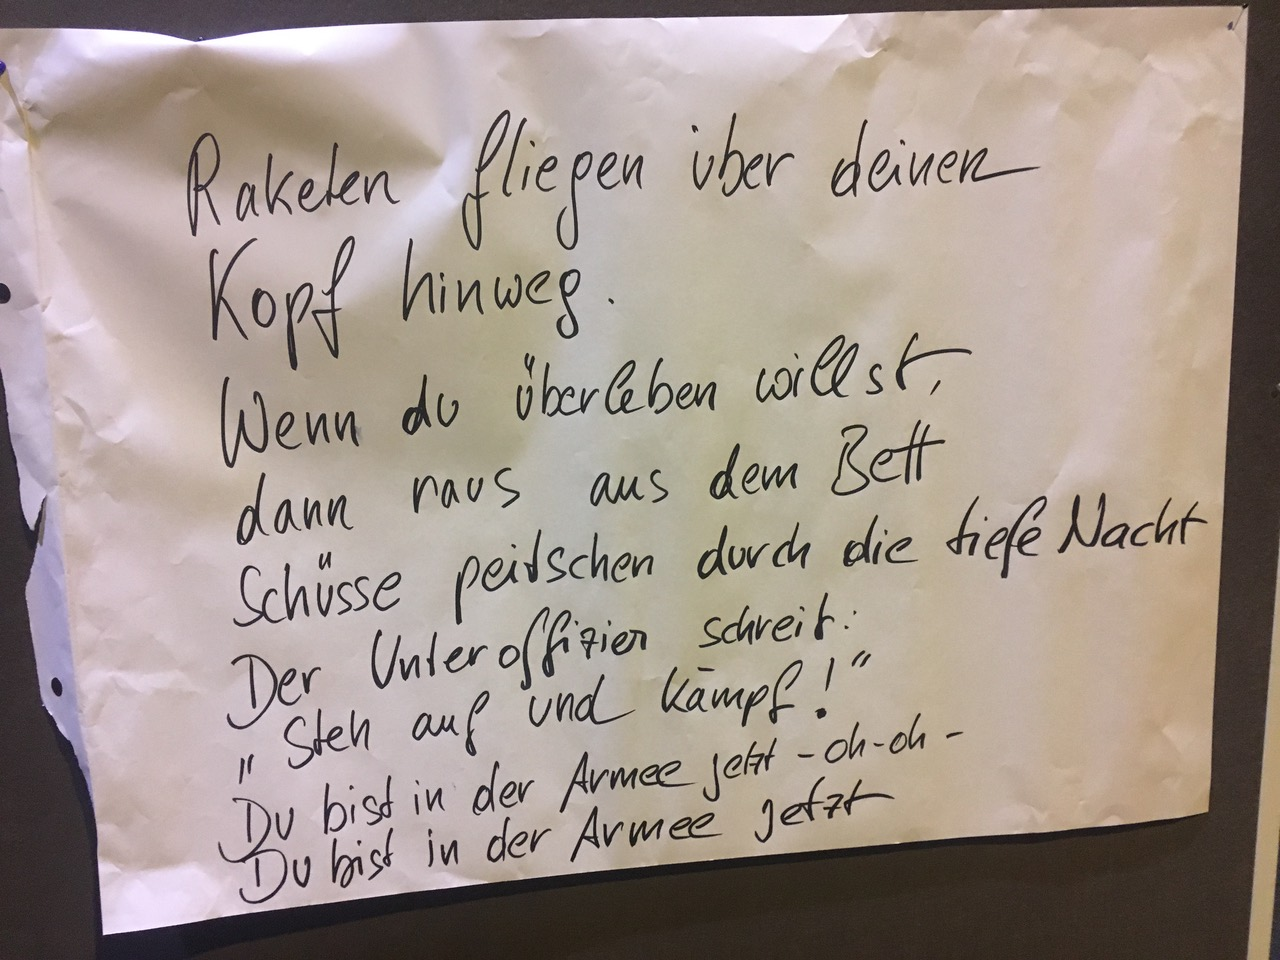 Raketen fliegen über deinen
Kopf hinweg.
Wenn du überleben willst,
dann raus aus dem Bett
Schüsse peitschen durch die tiefe Nacht
Der Unteroffizier schreit:
"Steh auf und kämpf!"
Du bist in der Armee jetzt - oh-oh -
Du bist in der Armee jetzt